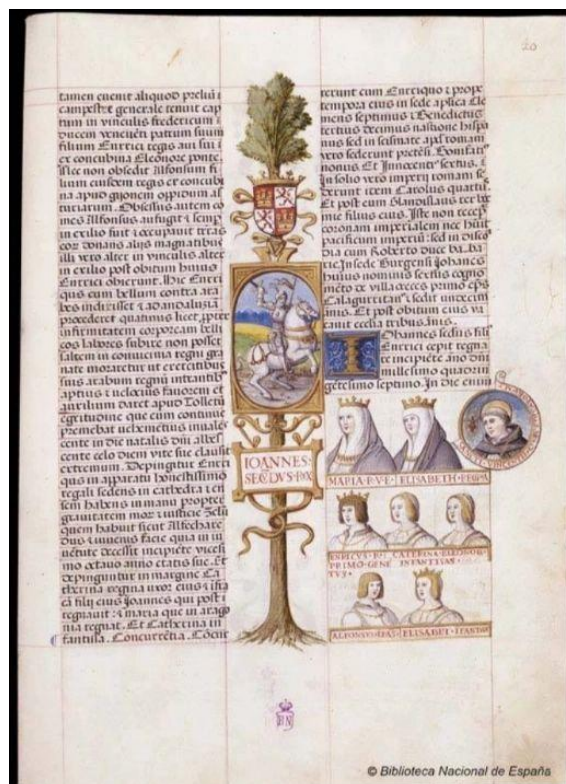 20
tamen euenit aliquod preluj i
campestre generale tenuit cap
tum in vinculis fredericum
ducem patrum suum
filium Enrici regis aui sui
ex concubina Eleonore ponte.
Nec non obsedit Alfonsum fi
lium eiusdem regis et concubi
na apud gijonem oppidum as
turiarum. Obsessus autem co
mes Alfonsus aufugit & semp
in exilio fuit & occupauit terras
donans alijs magnatibus
illi vero alter in vinculis alter
in exilio post obitum huius
Enrici obierunt. Hic Enri
qus cum bellum contra ara
bes indixisset & ad andaluzia
procederet quamuis licet propter
infirmitatem corpoream belli
cos labores subire non posset
saltem in conuicina regni gra
nate moraretur et exercitibus
sius arabum regnum intrantib
aptius & velocius fauorem et
auxilium daret apud Tolletum
egritudine que eum continue
premebat vehemetius inuales
cente in die natalis dni
cente celo diem vite sue clausit
extremum. Depingitur Enri
qus in apparatu honestissimo
regali sedens in cathedra
sem habens in manu propter
grauitatem mores iusticie Zelu
quem habuit
duo & iuuenis facie quia in iu
uetute decessit incipiete vicesi
mo octauo anno etatis sue. Et
depinguntur in margine Ca
therina regina uxor eius & ista
filij eius Joannes qui post
regnauit & maria que in arago
nia regnat. Et Catherina in
fantisa. Concurrentia. Cocur
rerunt cum Enriquo & prope
tempora eius in sede aplica Cle
mens septimus & Benedictus
tertius decimus natione hispa
nus sed in scismate
vero sederunt Bonifati
nonus. Et Innocenti sextus.
In solio vero imperij romani se
derunt item Carolus quartus
Et post eum
filius eius. Iste non recepit
coronam imperialem nec huit
pacificum imperiu sed in discor
dia cum Roberto duce
rie. In sede Burgensi Johanes
huius nominis sextus cogno
meto de villacreces primo eps
Calagurritan sedit undecim
anis. Et post obitum eius va
cauit ecclia tribus anis.
IOhannes secus filius
Enrici cepit regna
re incipiete ano dni
millesimo quadrin
getesimo septimo. In die enim
IOANNES:
SECVDVS·REX
MARIA·R·V·E· ELISABETH·REGNA
ENRICVS·P CATERINA·ELEONOR
PRIMO·GENE INFANTISAS·
TVS·
ALFONSVS· ELISABET·IFANTISA
BN
© Biblioteca Nacional de España